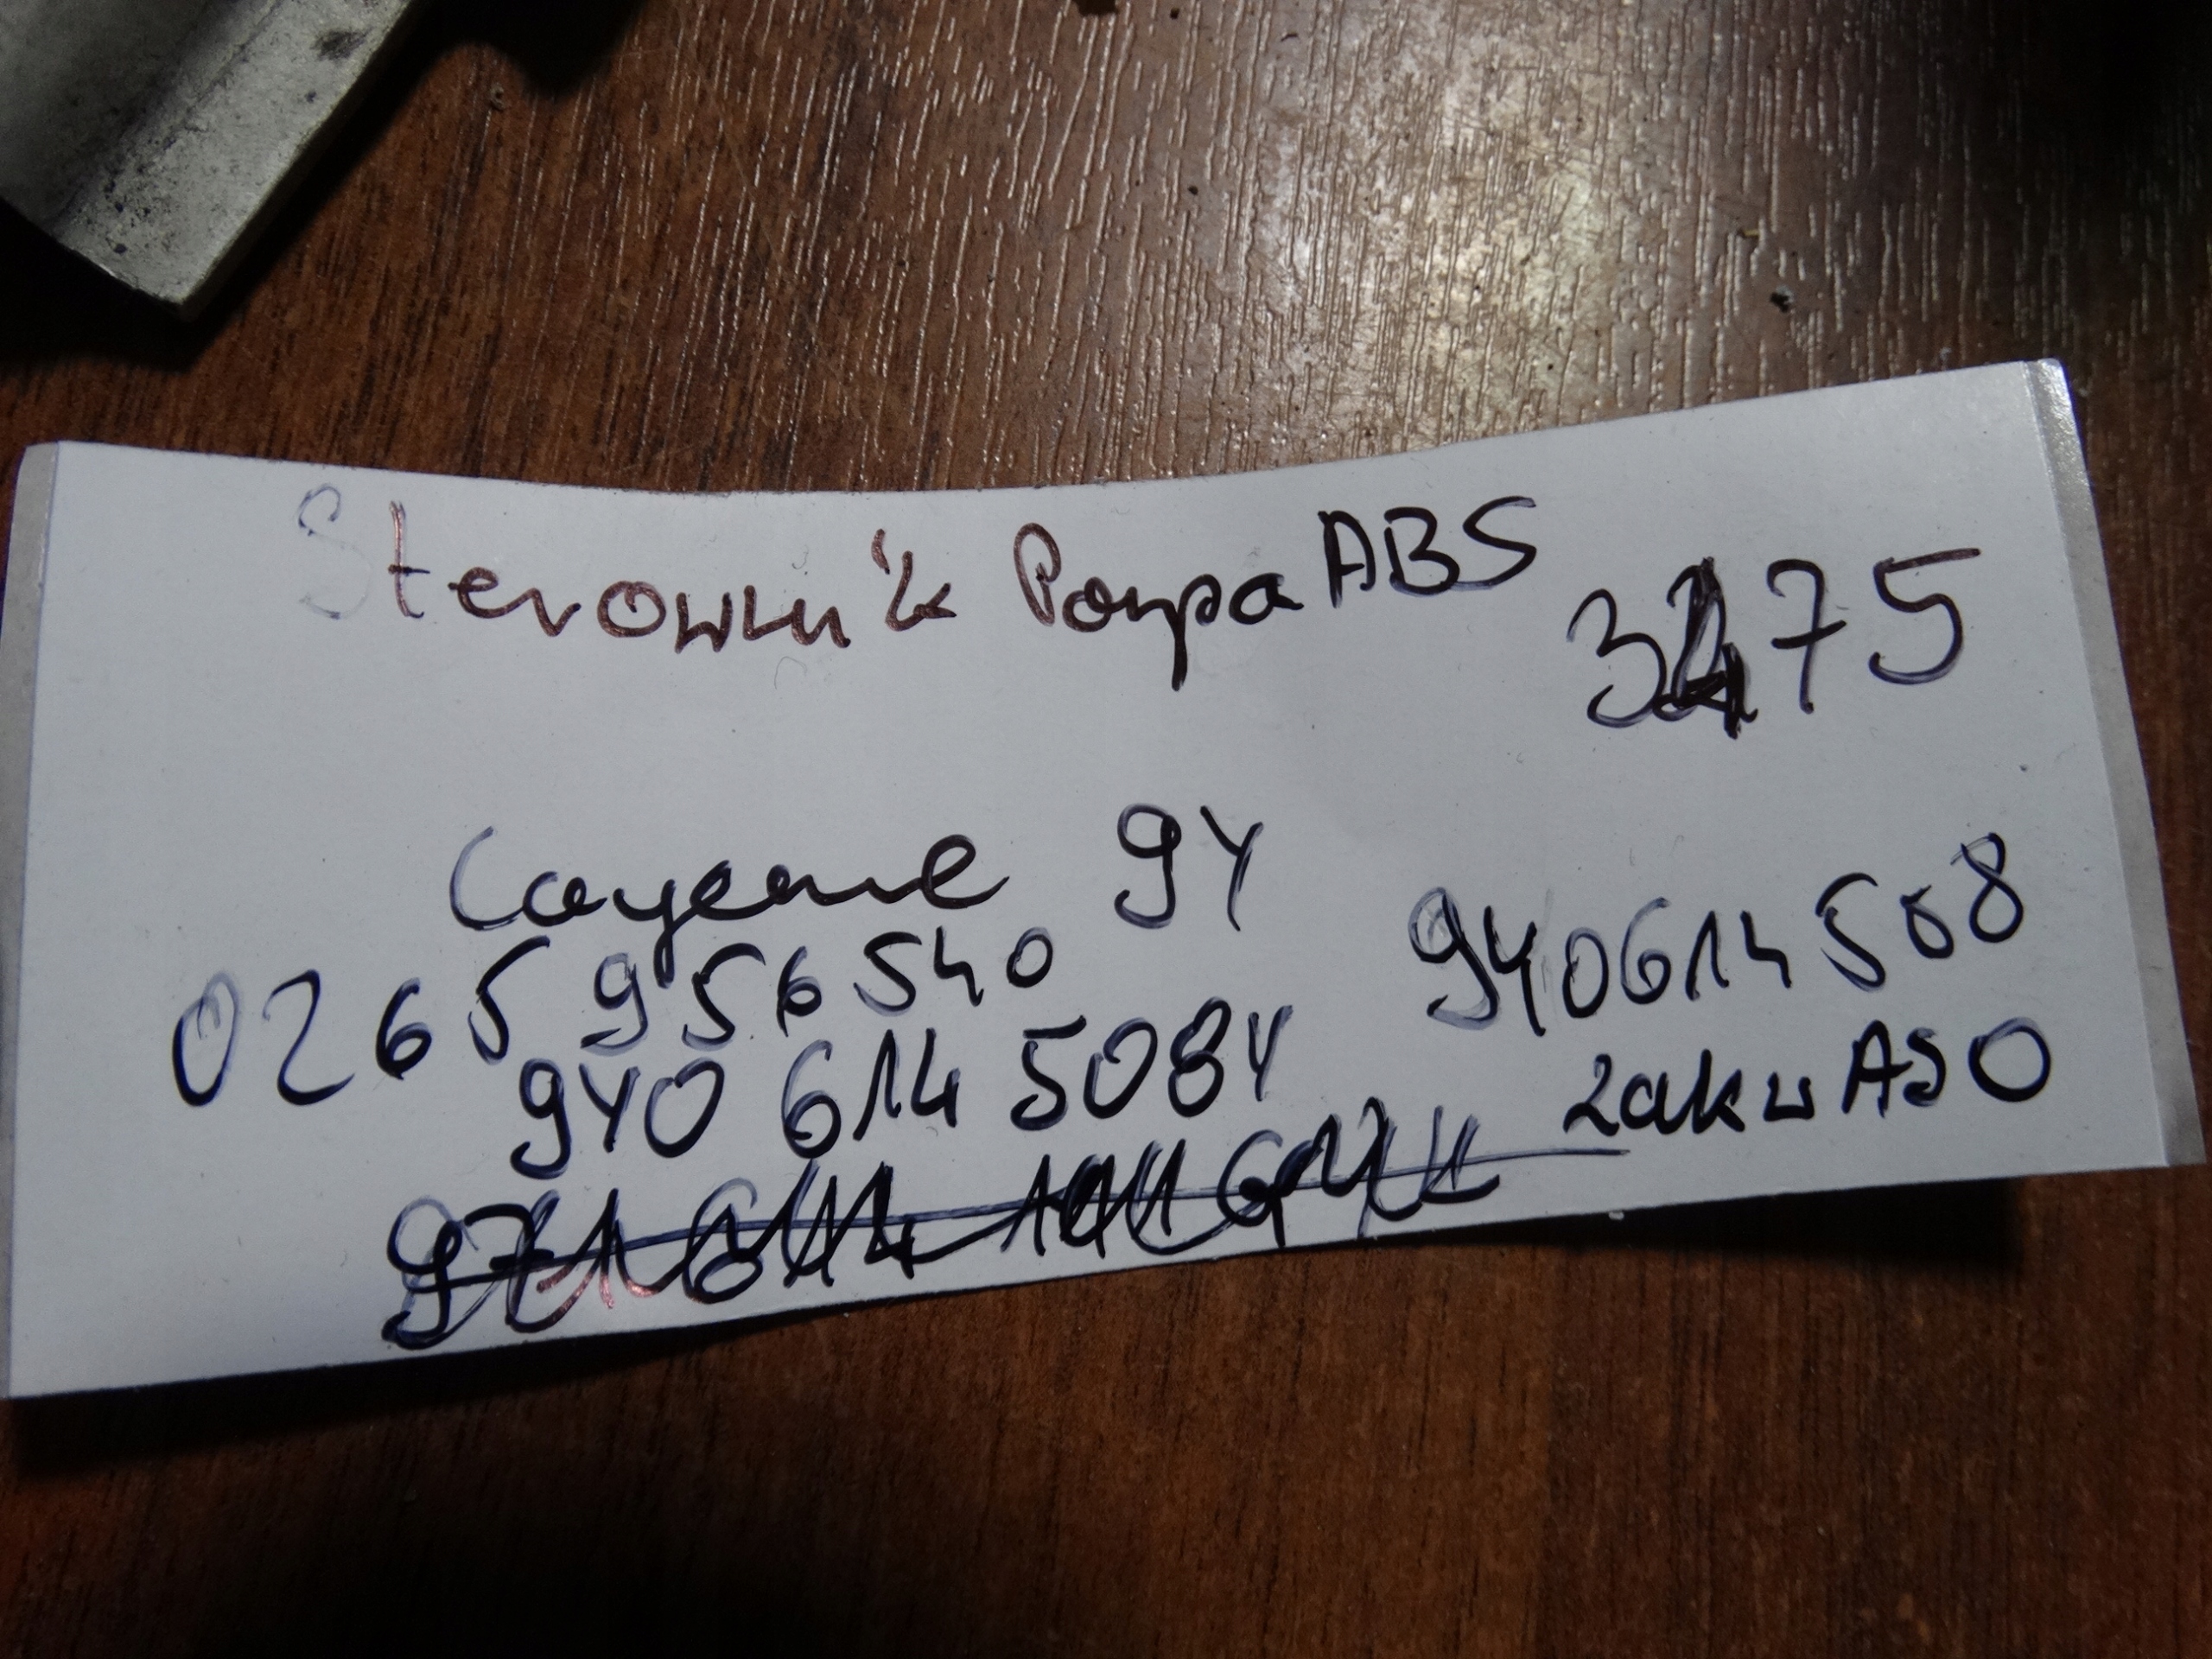 Sterownik Pompa ABS
3475
Cayenne 9Y
0265 956540
9Y0614508
9Y0 614 508Y
zaku ASO